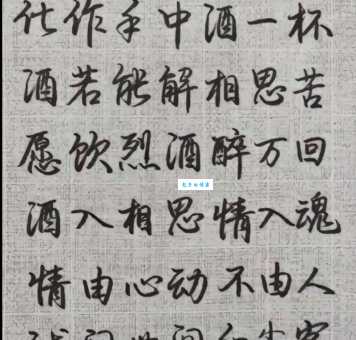 化作手中酒一杯
酒若能解相思苦
愿饮烈酒醉万回
酒入相思情入魂
情由心动不由人